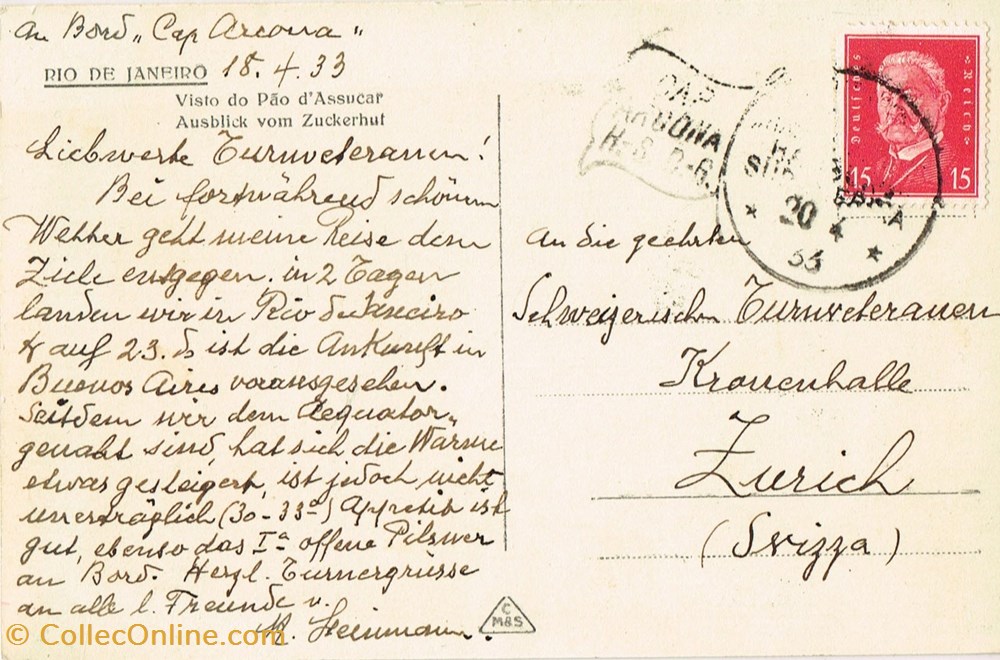 An Bord „Cap Arcona"
RIO DE JANEIRO 18.4.33
Visto do Pão d'Assucar
Ausblick vom Zuckerhut
Liebwerte Turnveteranen!
Bei fortwährend schönem
Wetter geht meine Reise dem
Ziele entgegen, in 2 Tagen
landen wir in Rio de Janeiro
& auf 23. ds ist die Ankunft in
Buenos Aires vorausgesehen.
Seitdem wir dem Aequator
genaht sind, hat sich die Wärme
etwas gesteigert, ist jedoch nicht
unerträglich (30-33°) Appetit ist
gut, ebenso das Iª offene Pilsner
an Bord. Herzl. Turnergrüsse
an alle l. Freunde u.
Steinmann.
CAP
ARCONA
Deutsches Reich
15 15
20 4
33
An die geehrten
Schweizerischen Turnveteranen
Kronenhalle
Zurich
(Svizza)
C
M&S
© CollecOnline.com